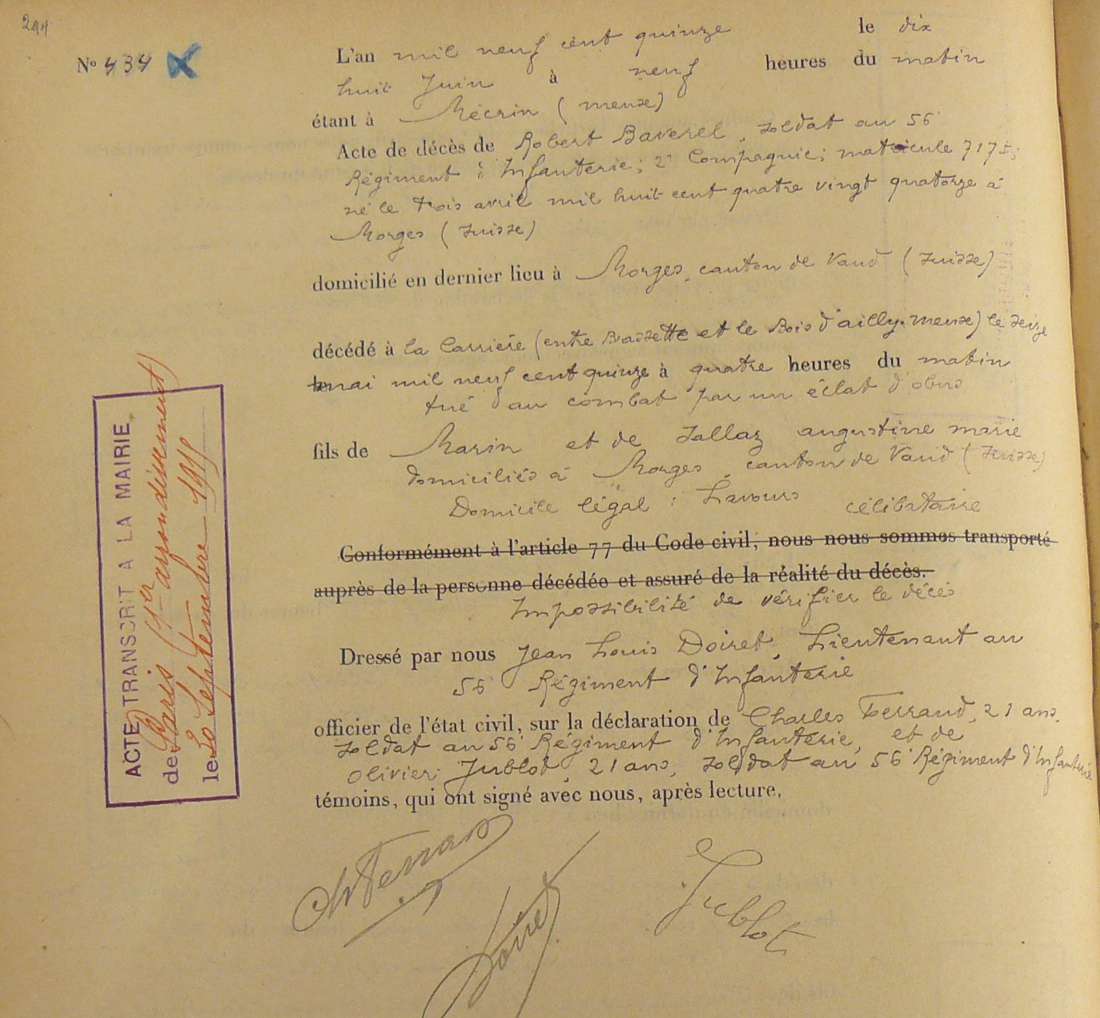 294
Nº 434
L'an mil neuf cent quinze le dix
huit Juin à neuf heures du matin
étant à Mécrin (Meuse)
Acte de décès de Robert Baverel, soldat au 56
Régiment d'Infanterie; 2e Compagnie; matricule 7175;
né le trois avril mil huit cent quatre vingt quatorze à
Morges (Suisse)
domicilié en dernier lieu à Morges, canton de Vaud (Suisse)
décédé à la Carrière (entre et le Bois d'ailly. meuse) le seize
mai mil neuf cent quinze à quatre heures du matin
tué au combat par un éclat d'obus
fils de Marin et de Jallaz augustine marie
domiciliés à Morges, canton de Vaud (Suisse)
Domicile légal : célibataire
Conformément à l'article 77 du Code civil, nous nous sommes transporté
auprès de la personne décédée et assuré de la réalité du décès.
Impossibilité de vérifier le décès
Dressé par nous Jean Louis Doiret, Lieutenant au
56 Régiment d'Infanterie
officier de l'état civil, sur la déclaration de Charles Ferraud, 21 ans,
soldat au 56 Régiment d'Infanterie, et de
Olivier Jublot, 21 ans, soldat au 56 Régiment d'Infanterie
témoins, qui ont signé avec nous, après lecture.
Doiret
Jublot
ACTE TRANSCRIT A LA MAIRIE
de Paris (1er arrondissement)
le 20 Septembre 1915